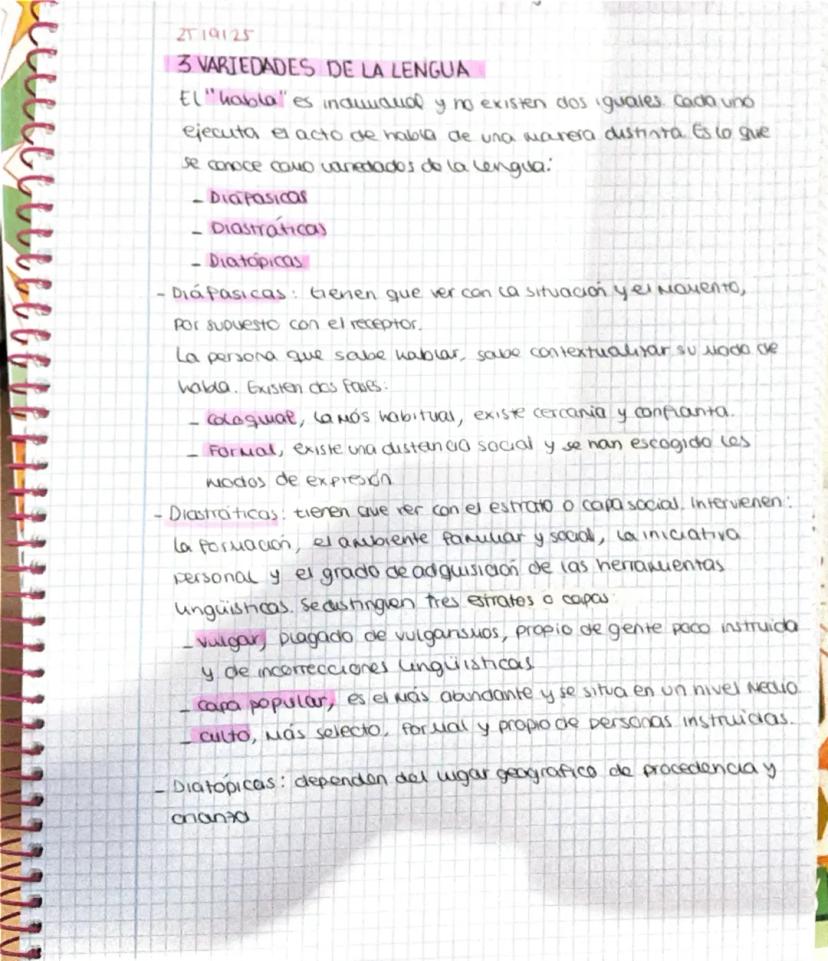 25/9/25
3 VARIEDADES DE LA LENGUA
El "habla" es individual y no existen dos iguales. Cada uno
ejecuta el acto de habla de una manera distinta. Es lo que
se conoce como variedades de la lengua:
- Diáfasicas
- Diastráticas
- Diatópicas
- Diáfasicas: tienen que ver con la situación y el momento,
por supuesto con el receptor.
La persona que sabe hablar, sabe contextualizar su modo de
habla. Existen dos fases:
- coloquial, la más habitual, existe cercania y confianza.
- Formal, existe una distancia social y se han escogido los
modos de expresión
- Diastráticas: tienen que ver con el estrato o capa social. Intervienen:
la formación, el ambiente familiar y social, la iniciativa
personal y el grado de adquisición de las herramientas
lingüísticas. Se distinguen tres estratos o capas:
- vulgar, plagado de vulgarismos, propio de gente poco instruida
y de incorrecciones lingüísticas
- capa popular, es el más abundante y se situa en un nivel medio.
- culto, más selecto, formal y propio de personas instruidas.
- Diatópicas: dependen del lugar geografico de procedencia y
crianza